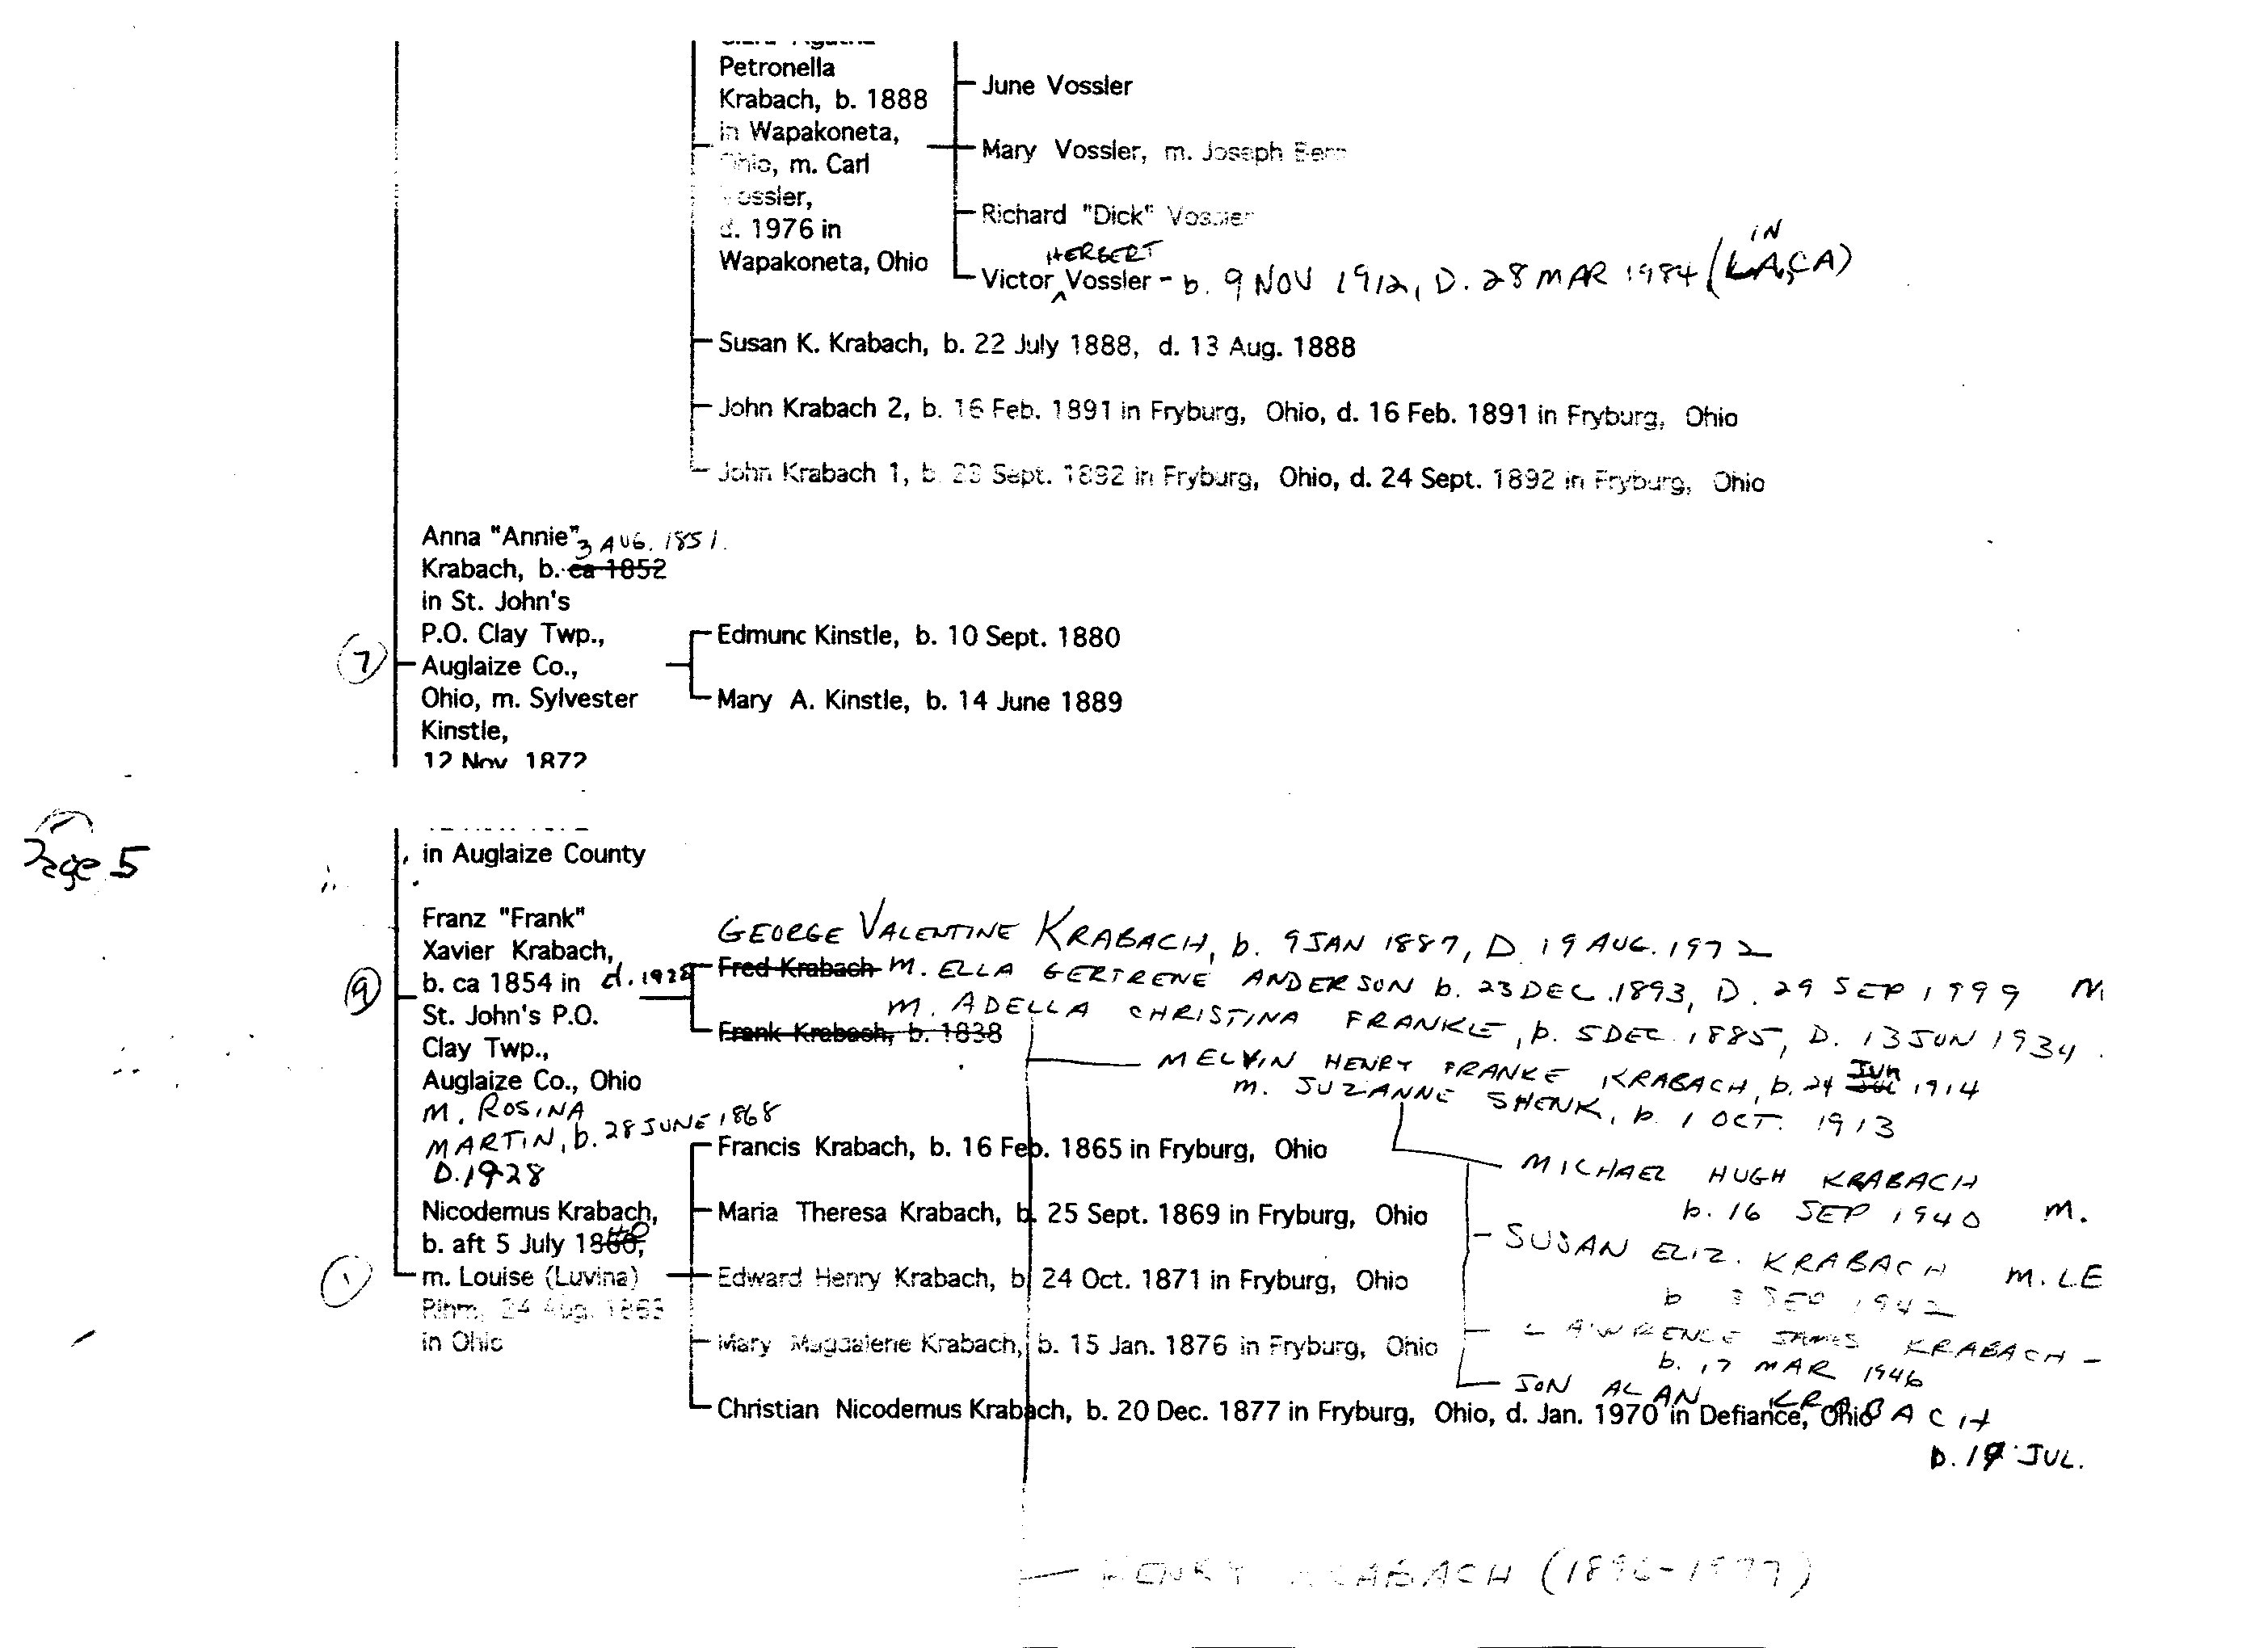 Petronella
Krabach, b. 1888
in Wapakoneta,
Ohio, m. Carl
Vossler,
d. 1976 in
Wapakoneta, Ohio
June Vossler
Mary Vossler, m. Joseph
Richard "Dick" Vossler
HERBERT
IN
Victor ^ Vossler - b. 9 NOV 1912, D. 28 MAR 1984 (LA, CA)
Susan K. Krabach, b. 22 July 1888, d. 13 Aug. 1888
John Krabach 2, b. 16 Feb. 1891 in Fryburg, Ohio, d. 16 Feb. 1891 in Fryburg, Ohio
John Krabach 1, b. 23 Sept. 1892 in Fryburg, Ohio, d. 24 Sept. 1892 in Fryburg, Ohio
Anna "Annie" 3 AUG. 1851.
Krabach, b. ca 1852
in St. John's
P.O. Clay Twp.,
7 Auglaize Co.,
Ohio, m. Sylvester
Kinstle,
12 Nov 1872
Edmunc Kinstle, b. 10 Sept. 1880
Mary A. Kinstle, b. 14 June 1889
Page 5
in Auglaize County
Franz "Frank"
Xavier Krabach,
9 b. ca 1854 in d. 1928
St. John's P.O.
Clay Twp.,
Auglaize Co., Ohio
M. ROSINA
MARTIN, b. 28 JUNE 1868
D. 1928
GEORGE VALENTINE KRABACH, b. 9 JAN 1887, D 19 AUG. 1972
Fred Krabach M. ELLA GERTRENE ANDERSON b. 23 DEC. 1893, D. 29 SEP 1999 M
M. ADELLA CHRISTINA FRANKLE, b. 5 DEC. 1885, D. 13 JUN 1934.
Frank Krabach, b. 1838
MELVIN HENRY FRANKE KRABACH, b. 24 JUL JUN 1914
M. SUZANNE SHENK, b. 1 OCT. 1913
MICHAEL HUGH KRABACH
b. 16 SEP 1940 M.
SUSAN ELIZ. KRABACH M. LE
b 3 SEP 1942
LAWRENCE JAMES KRABACH -
b. 17 MAR 1946
JON ALAN KRABACH
D. 19 JUL.
Nicodemus Krabach,
b. aft 5 July 1840,
1 m. Louise (Luvina)
Rihm, 24 Aug. 1863
in Ohio
Francis Krabach, b. 16 Feb. 1865 in Fryburg, Ohio
Maria Theresa Krabach, b. 25 Sept. 1869 in Fryburg, Ohio
Edward Henry Krabach, b 24 Oct. 1871 in Fryburg, Ohio
Mary Magdalene Krabach, b. 15 Jan. 1876 in Fryburg, Ohio
Christian Nicodemus Krabach, b. 20 Dec. 1877 in Fryburg, Ohio, d. Jan. 1970 in Defiance, Ohio
HENRY KRABACH (1896-1977)